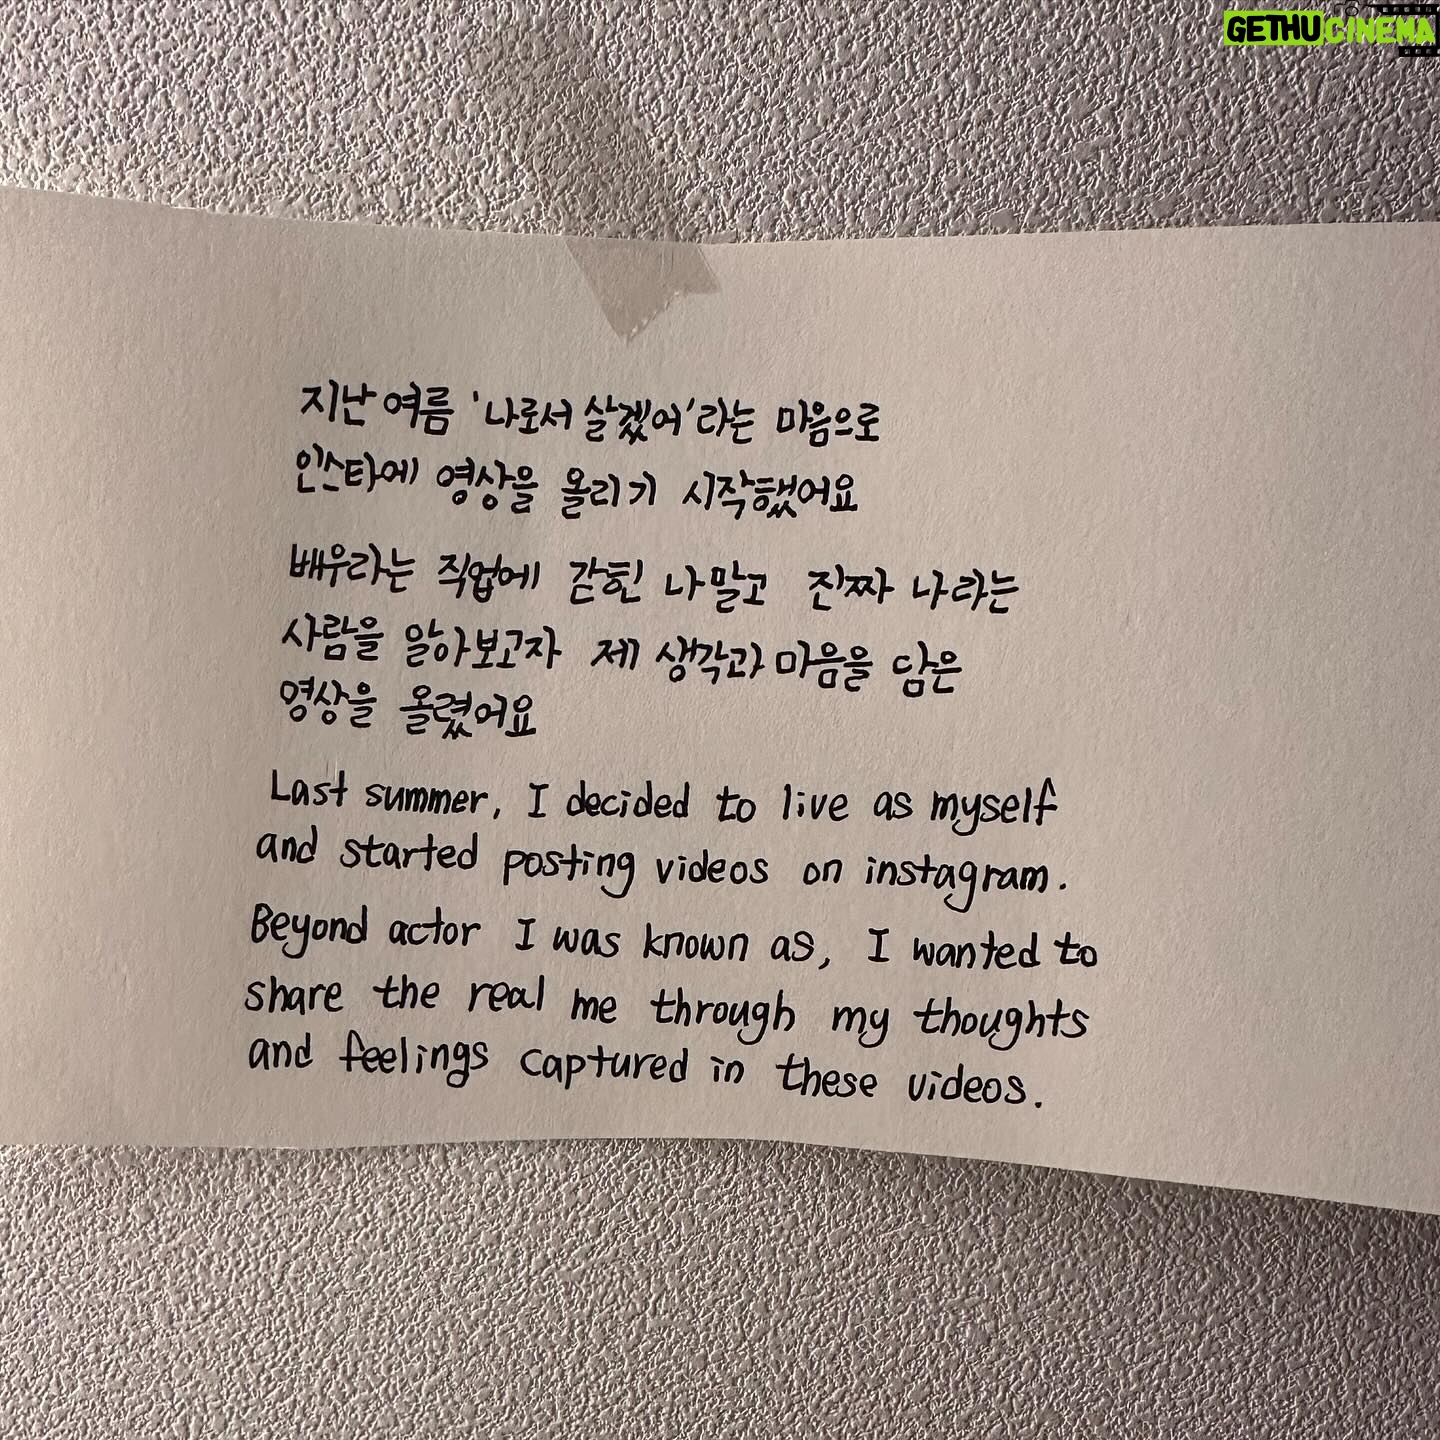 GETHUCINEMA
지난 여름 '나로서 살겠어'라는 마음으로
인스타에 영상을 올리기 시작했어요
배우라는 직업에 갇힌 나말고 진짜 나라는
사람을 알아보고자 제 생각과 마음을 담은
영상을 올렸어요
Last summer, I decided to live as myself
and started posting videos on instagram.
Beyond actor I was known as, I wanted to
share the real me through my thoughts
and feelings captured in these videos.